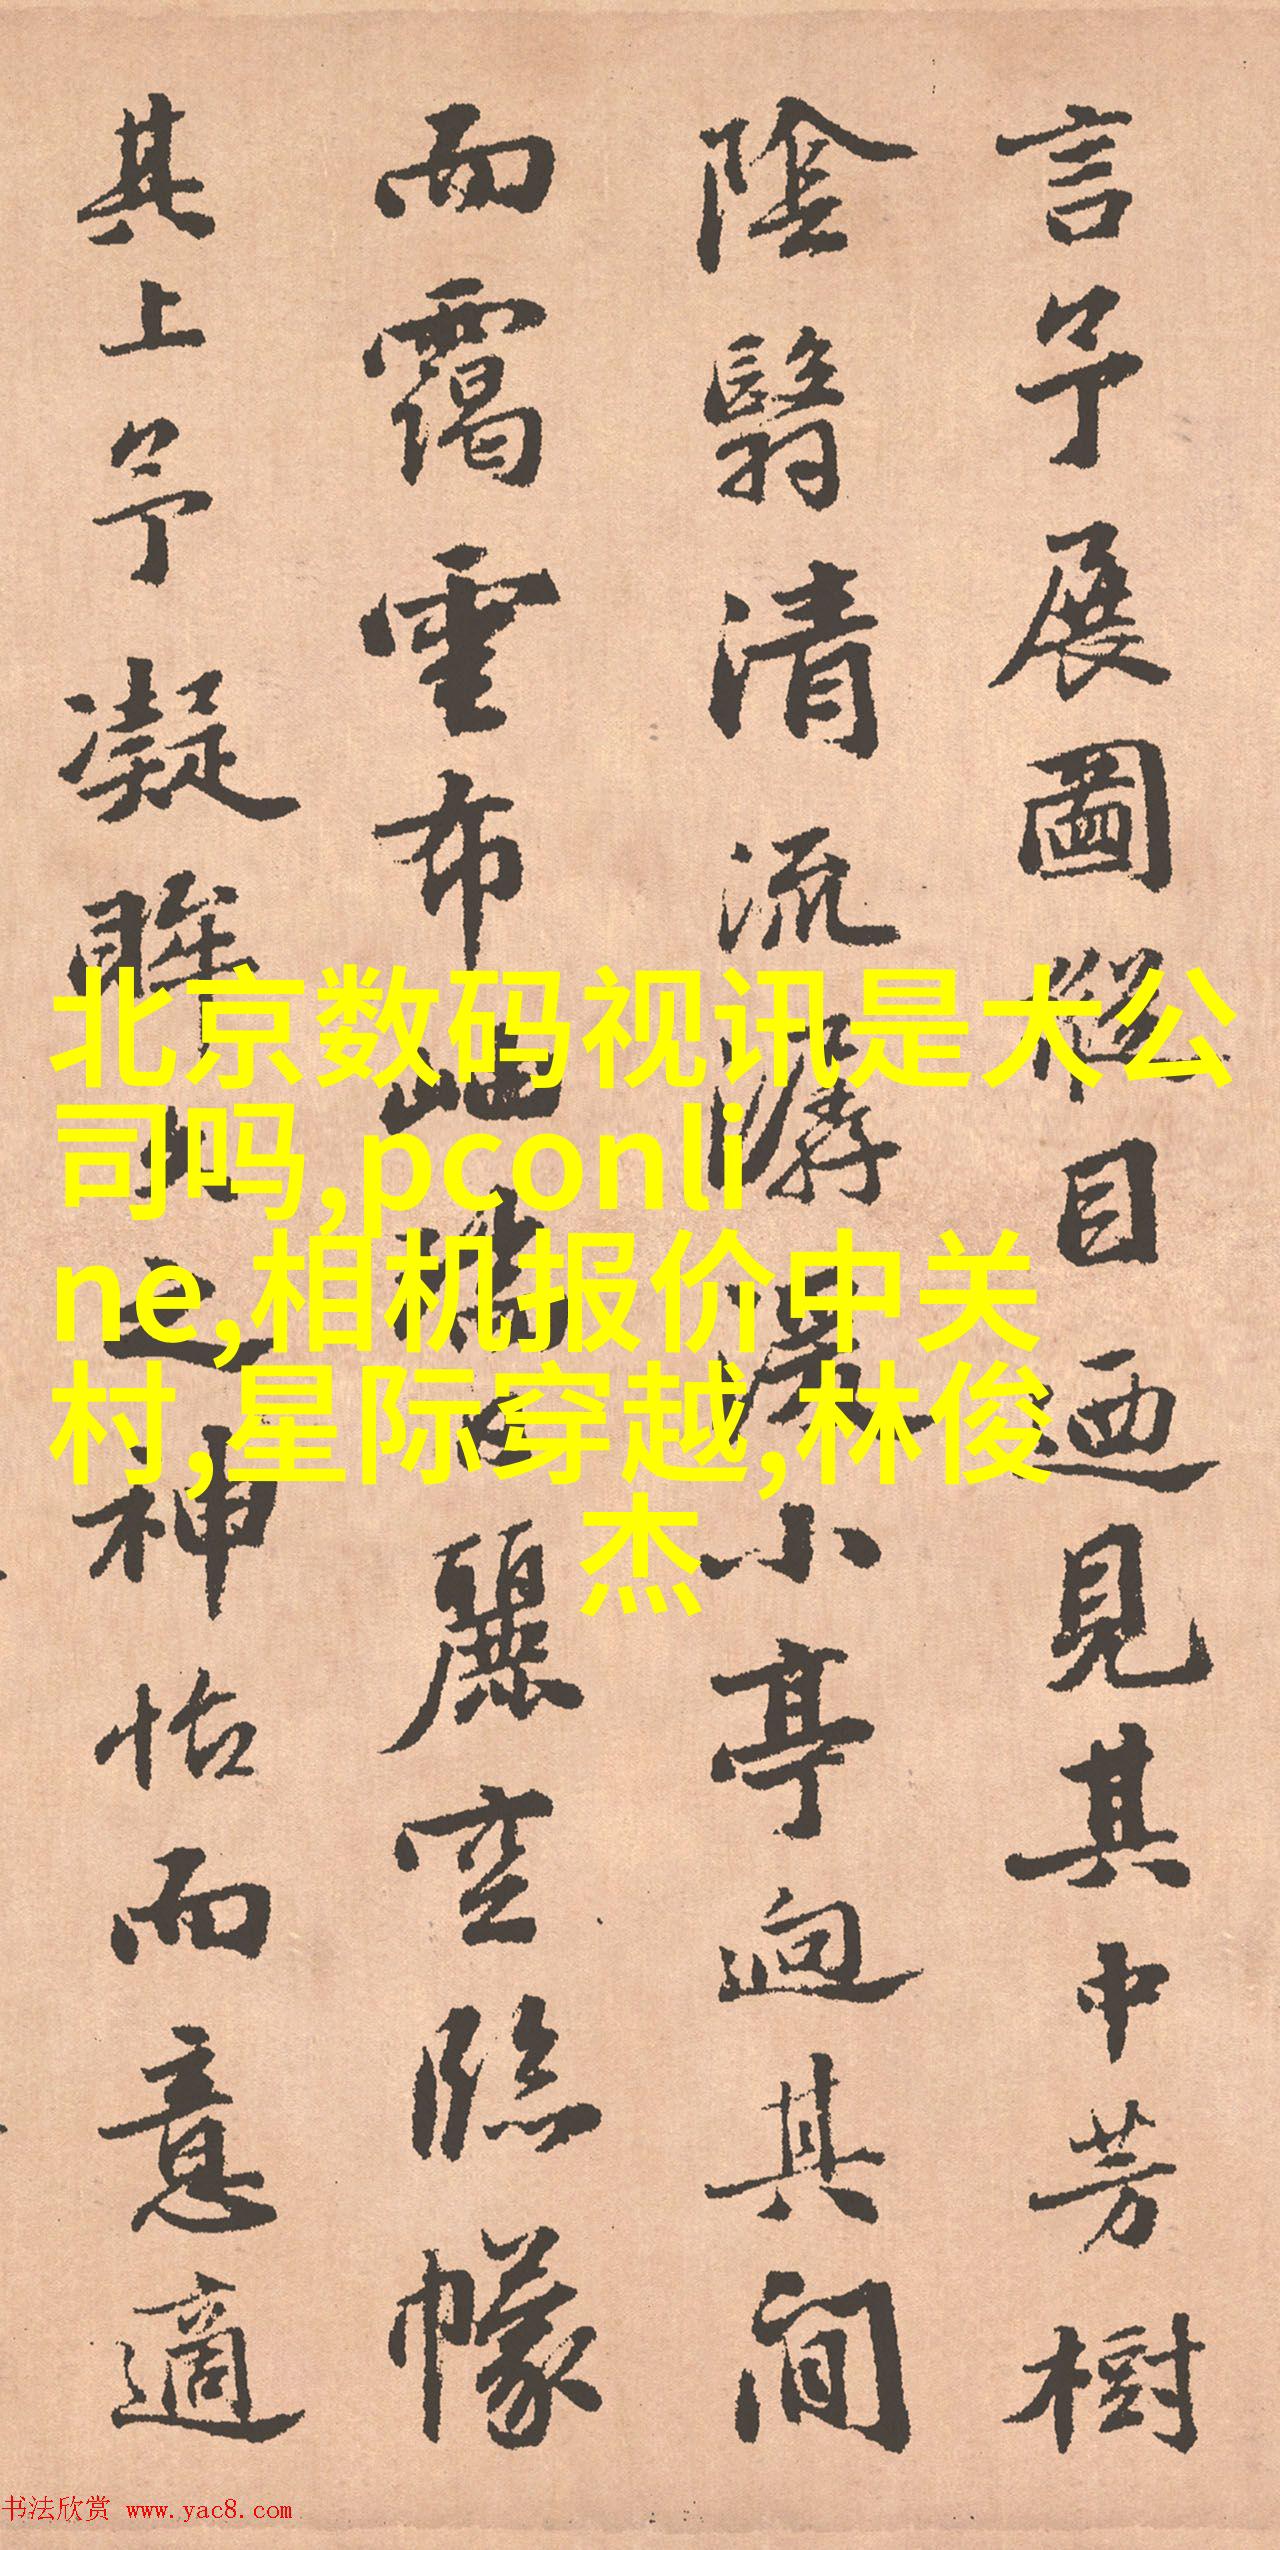 言予展圖縱目迺見其中芳樹
陰翳清流潺湲小亭迥其間
而靄雲布岫瑞日麗空臨幪
其上予凝眸久之神怡而意適
北京数码视讯是大公
司吗,pconli
ne,相机报价中关
村,星际穿越,林俊
杰
书法欣赏 www.yac8.com